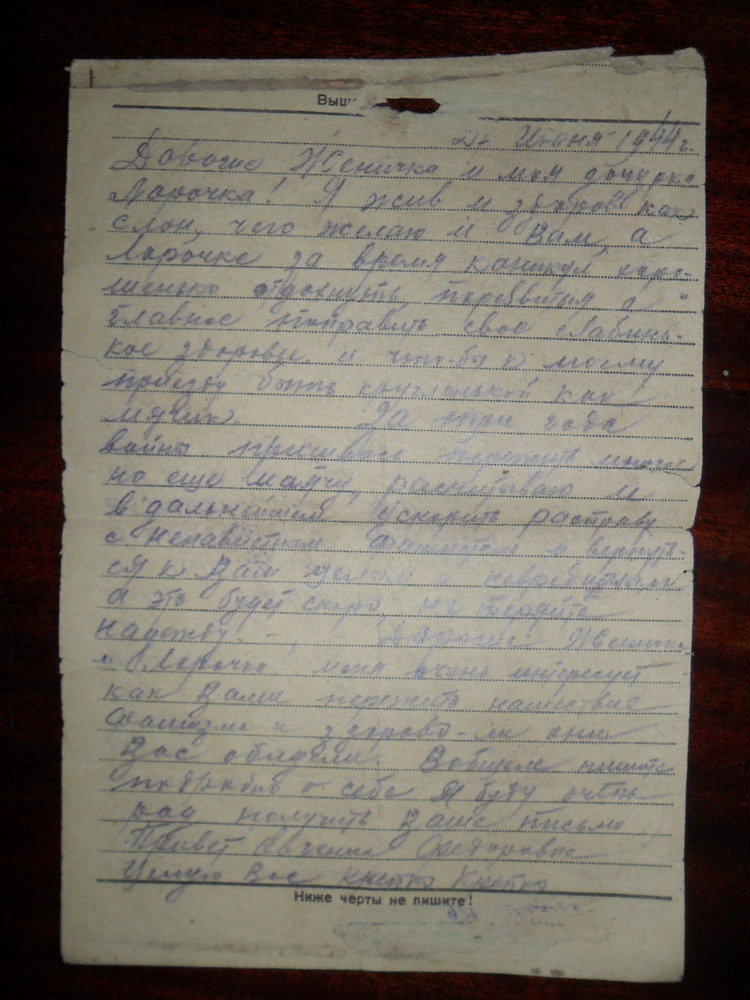 Выш
24 Июня 1944 г.
Дорогие Женичка и моя дочурка
Лорочка! Я жив и здоров как
слон, чего желаю и Вам, а
Лорочке за время каникул хоро-
шенько отдохнуть, а
главное поправить свое слабинь-
кое здоровье и что-бы к моему
приезду быть кругленькой как
мячик. За три года
войны пришлось пережить много
но еще маячу, расчитываю и
в дальнейшем ускорить расправу
с ненавистным фашизмом и вернуть-
ся к Вам целым и невредимым
а это будет скоро, не теряйте
надежду. Дорогие Женичка
и Лорочка меня очень интересует
как Вами пережито нашествие
фашизма и здорово-ли они
Вас обидели. Вобщем пишите
подробно о себе Я буду очень
рад получить Ваше письмо
Привет Евгении Федоровне
Целую Вас крепко крепко
Ниже черты не пишите!